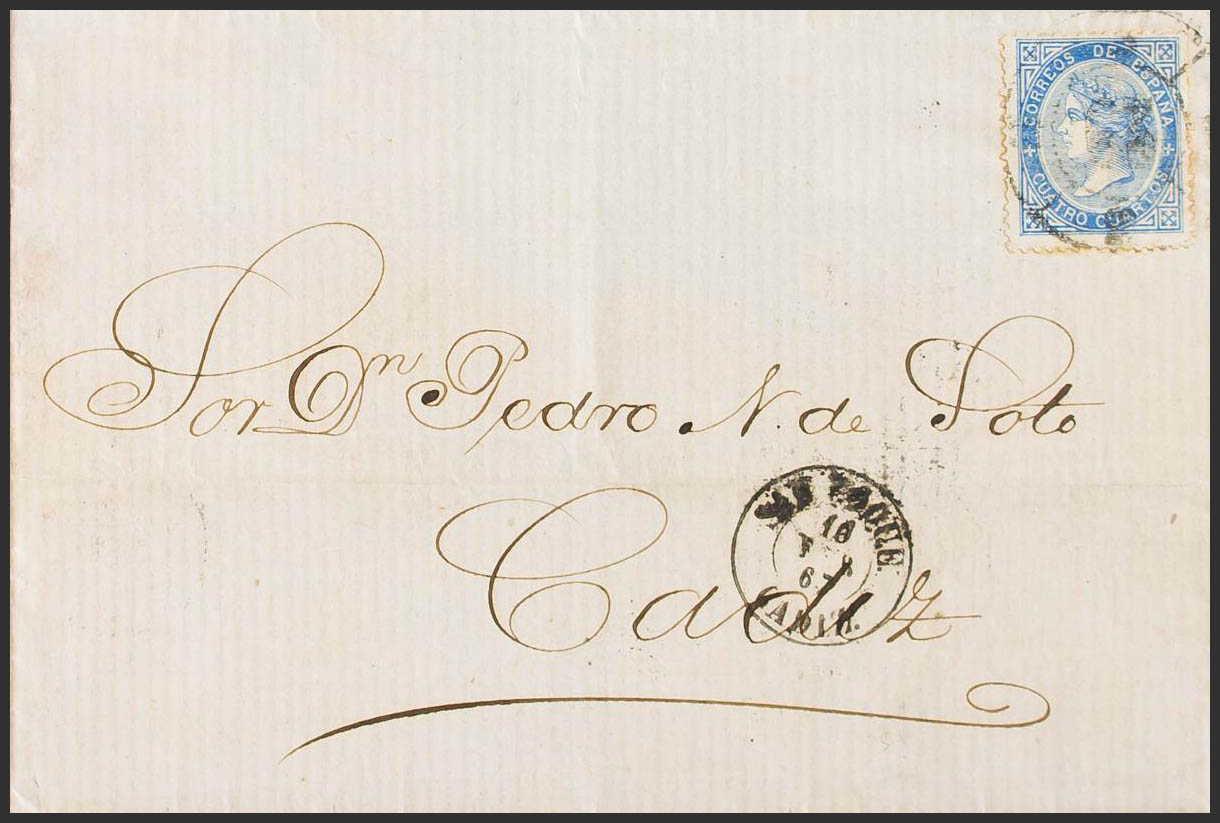 CORREOS DE ESPAÑA
CUATRO CUARTOS
Sor Dn Pedro N. de Soto
Cadiz
SAN ROQUE.
CADIZ.